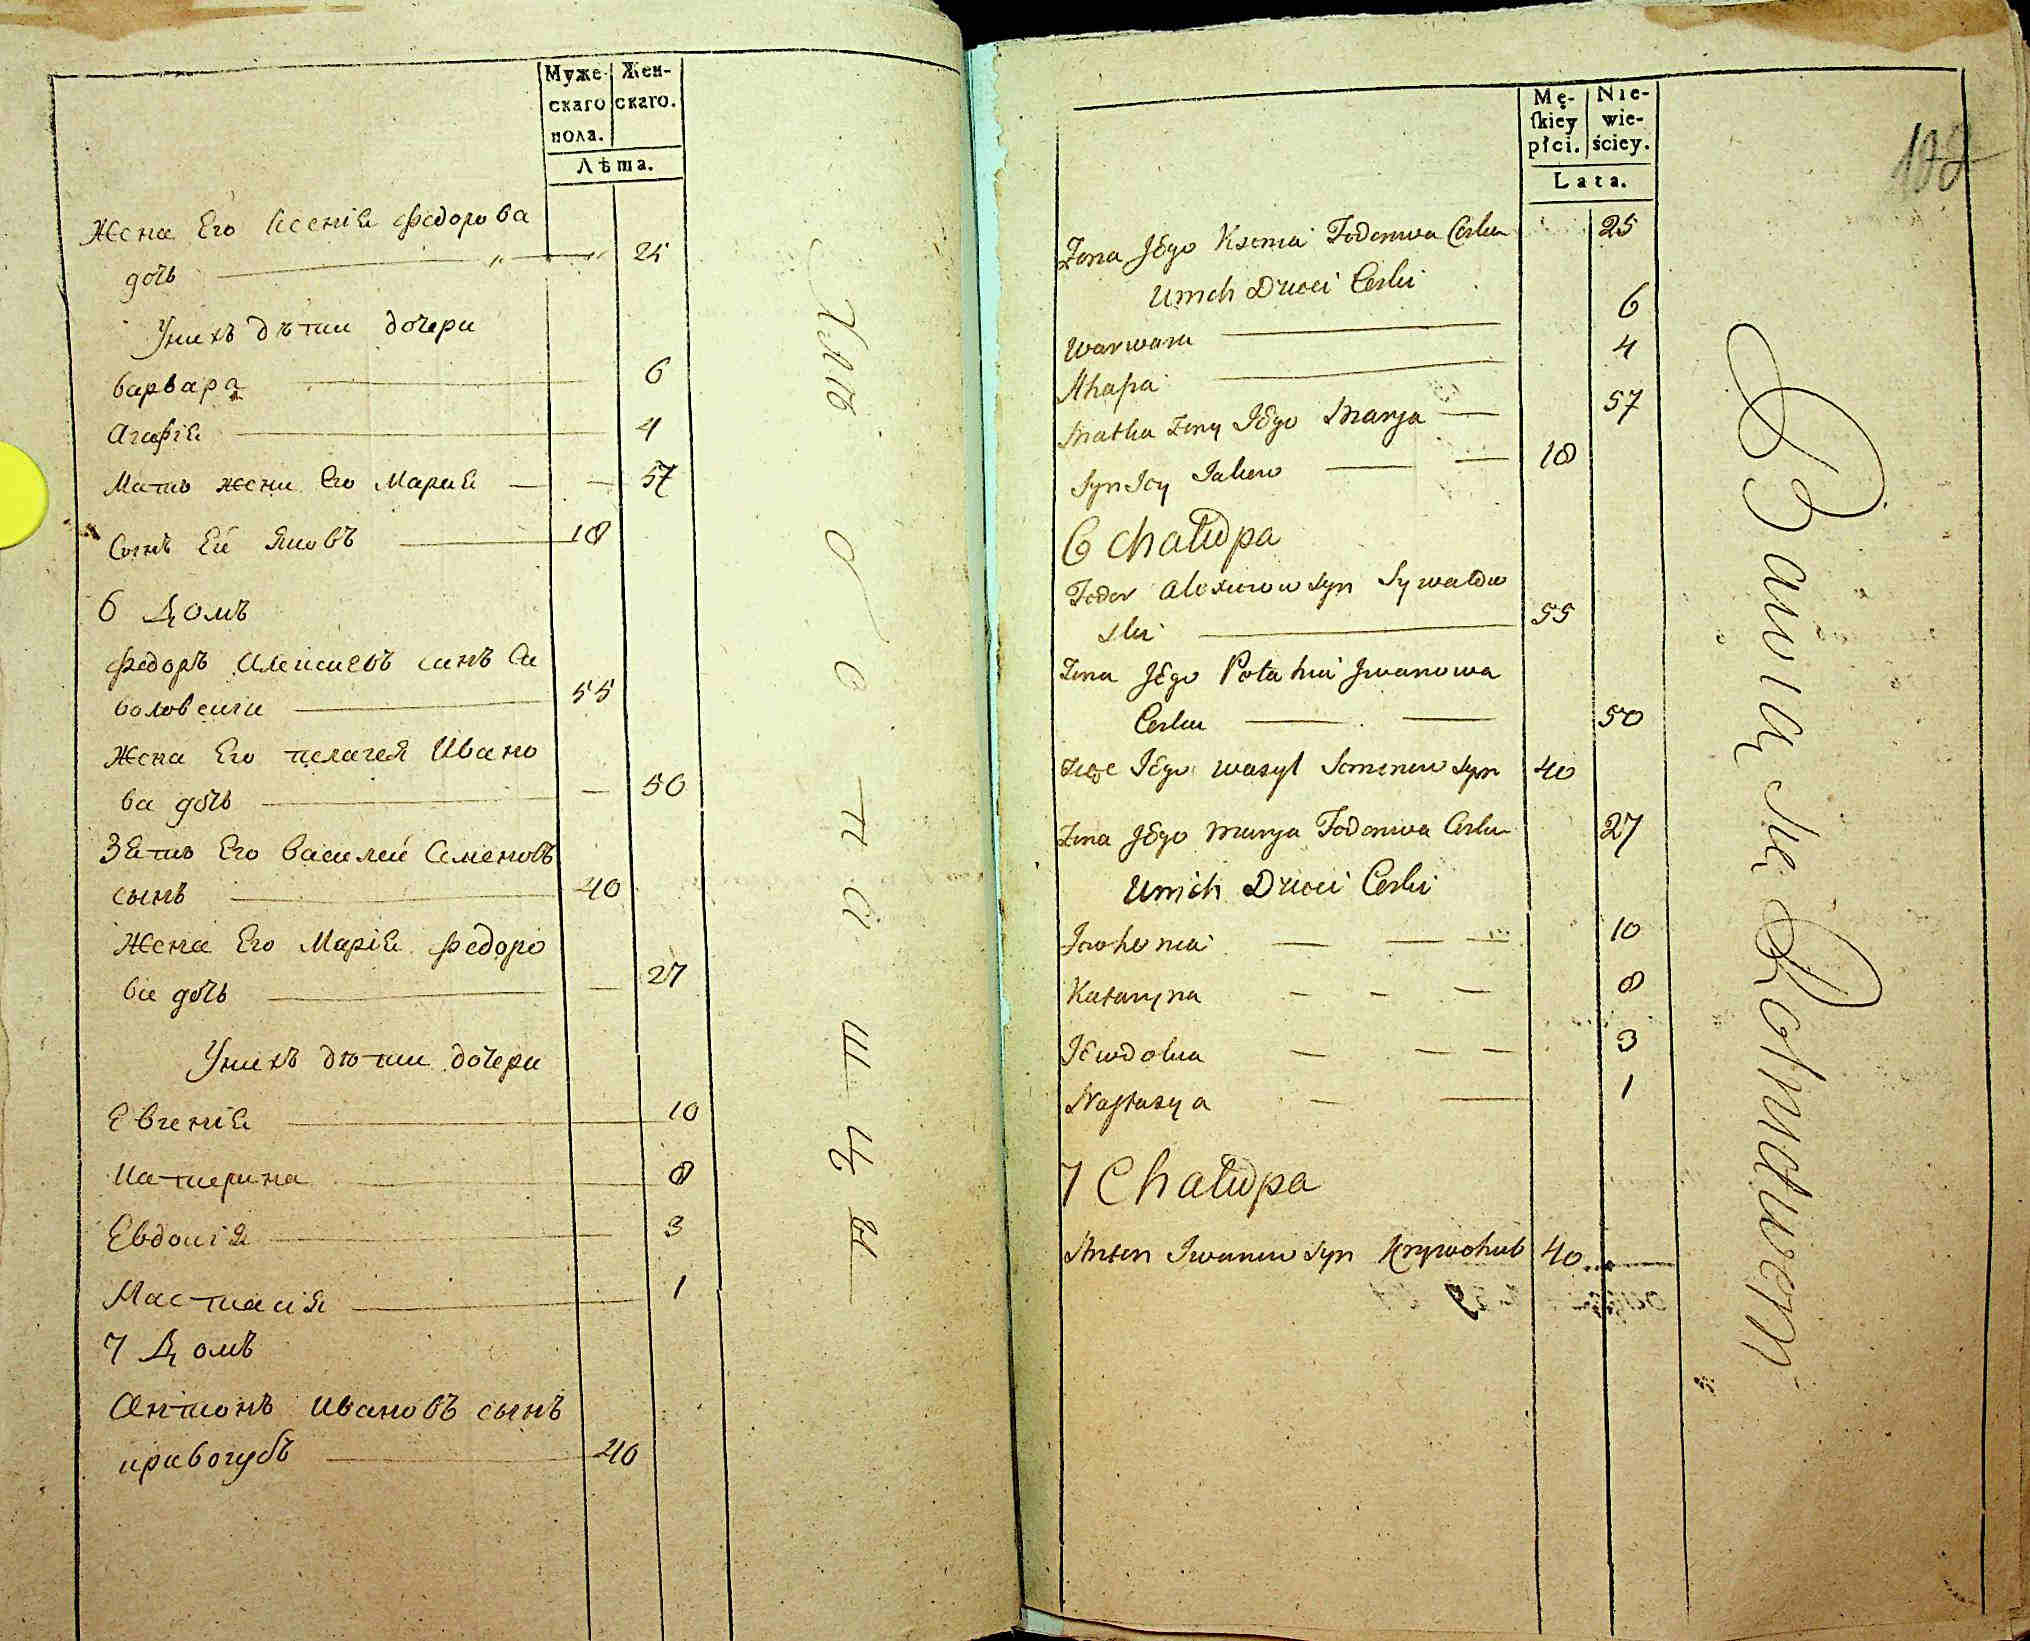 Муже-
скаго
пола.
Жен-
скаго.
Лѣта.
Жена Его Ксенія Федорова
дочь 25
Унихъ дѣти дочери
Варвара 6
Агафія 4
Мать жени Его Мария 57
Сынъ Ей Яковъ 18
6 Домъ
Федоръ Алексиевъ синъ Си
воловски 55
Жена Его пелагея Ивано
ва дочь 50
Зять Его Василей Семеновъ
сынъ 40
Жена Его Марія Федоро
ва дочь 27
Унихъ дѣти дочери
Евгенія 10
Катерина 8
Евдокія 3
Настасія 1
7 Домъ
Антонъ Ивановъ сынъ
кривогубъ 40
Хлѣбопашцы
Mę-
ſkiey
płci.
Nie-
wie-
ściey.
Lata.
102
Zona JEgo Ksenia Fedorowa Corka 25
Unich Dzieci Corki
Warwara 6
Ahafia 4
Matka Zony JEgo Marya 57
Syn Jey Jakow 18
6 Chałupa
Fedor Alexieiow Syn Sywałow
ski 55
Zona JEgo Połahia Jwanowa
Corka 50
Zięć JEgo Wasyl Semenow Syn 40
Zona JEgo Marya Fedorowa Corka 27
Unich Dzieci Corki
Jewhenia 10
Kataryna 8
JEwdokia 3
Nastazya 1
7 Chałupa
Anton Iwanow Syn Krywohub 40
Bawią się Rolnictwem